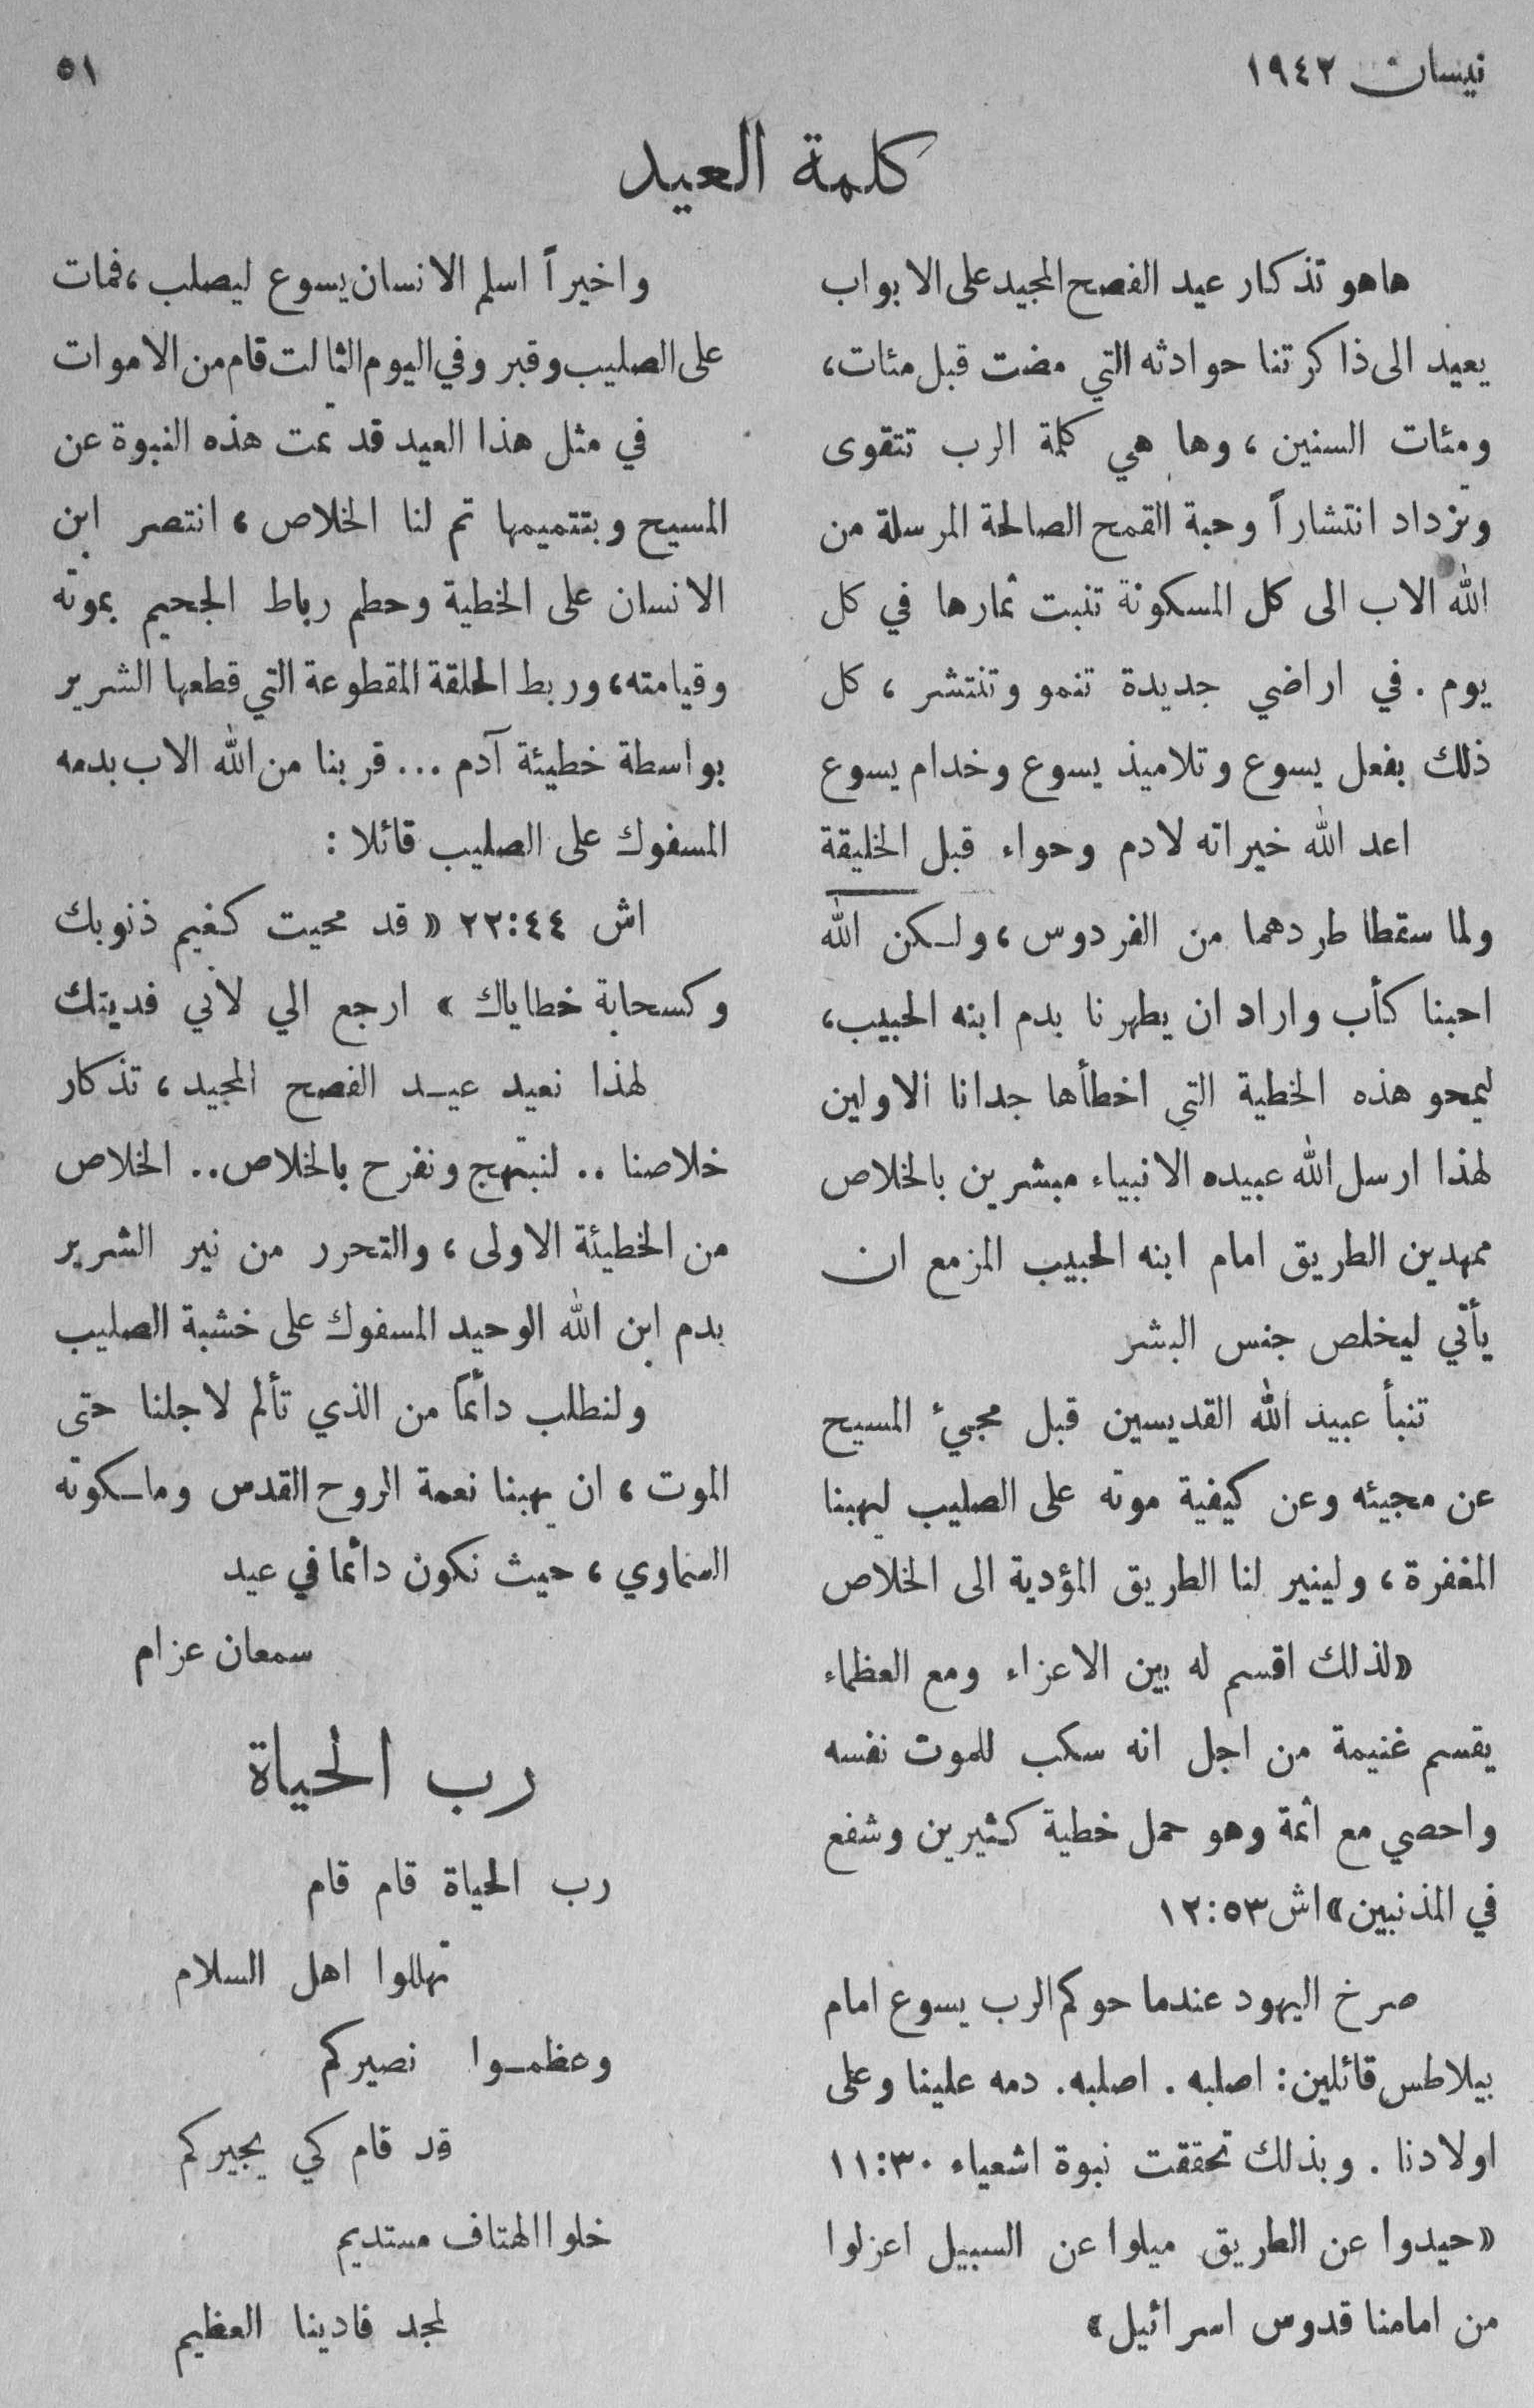 نيسان ١٩٤٢
٥١
كلمة العيد
هاهو تذكار عيد الفصح المجيد على الابواب
يعيد الى ذاكرتنا حوادثه التي مضت قبل مئات،
ومئات السنين، وها هي كلمة الرب تتقوى
وتزداد انتشاراً وحبة القمح الصالحة المرسلة من
الله الاب الى كل المسكونة تنبت ثمارها في كل
يوم. في اراضي جديدة تنمو وتنتشر، كل
ذلك بفعل يسوع وتلاميذ يسوع وخدام يسوع
اعد الله خيراته لادم وحواء قبل الخليقة
ولما سقطا طردهما من الفردوس، ولكن الله
احبنا كأب واراد ان يطهرنا بدم ابنه الحبيب،
ليمحو هذه الخطية التي اخطأها جدانا الاولين
لهذا ارسل الله عبيده الانبياء مبشرين بالخلاص
ممهدين الطريق امام ابنه الحبيب المزمع ان
يأتي ليخلص جنس البشر
تنبأ عبيد الله القديسين قبل مجيء المسيح
عن مجيئه وعن كيفية موته على الصليب ليهبنا
المغفرة، ولينير لنا الطريق المؤدية الى الخلاص
«لذلك اقسم له بين الاعزاء ومع العظماء
يقسم غنيمة من اجل انه سكب للموت نفسه
واحصي مع اثمة وهو حمل خطية كثيرين وشفع
في المذنبين» اش ٥٣:١٢
صرخ اليهود عندما حوكم الرب يسوع امام
بيلاطس قائلين: اصلبه. اصلبه. دمه علينا وعلى
اولادنا. وبذلك تحققت نبوة اشعياء ٣٠:١١
«حيدوا عن الطريق ميلوا عن السبيل اعزلوا
من امامنا قدوس اسرائيل»
واخيراً اسلم الانسان يسوع ليصلب، فمات
على الصليب وقبر وفي اليوم الثالت قام من الاموات
في مثل هذا العيد قد تمت هذه النبوة عن
المسيح وبتتميمها تم لنا الخلاص، انتصر ابن
الانسان على الخطية وحطم رباط الجحيم بموته
وقيامته، وربط الحلقة المقطوعة التي قطعها الشرير
بواسطة خطيئة آدم ... قربنا من الله الاب بدمه
المسفوك على الصليب قائلا:
اش ٤٤:٢٢ «قد محيت كغيم ذنوبك
وكسحابة خطاياك» ارجع الي لأني فديتك
لهذا نعيد عيد الفصح المجيد، تذكار
خلاصنا .. لنبتهج ونفرح بالخلاص.. الخلاص
من الخطيئة الاولى، والتحرر من نير الشرير
بدم ابن الله الوحيد المسفوك على خشبة الصليب
ولنطلب دائماً من الذي تألم لاجلنا حتى
الموت، ان يهبنا نعمة الروح القدس وملكوته
السماوي، حيث نكون دائما في عيد
سمعان عزام
رب الحياة
رب الحياة قام قام
تهللوا اهل السلام
وعظموا نصيركم
قد قام كي يجيركم
خلوا الهتاف مستديم
لمجد فادينا العظيم